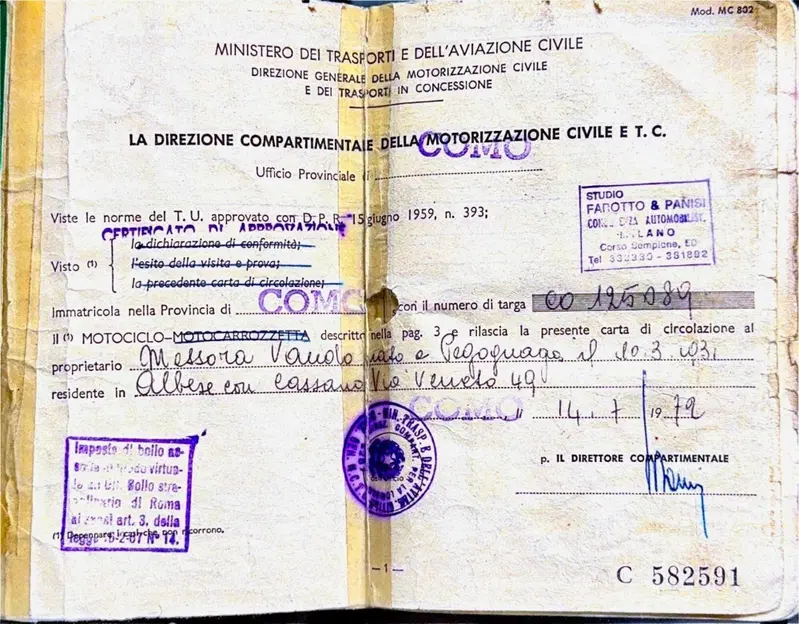 Mod. MC 802
MINISTERO DEI TRASPORTI E DELL'AVIAZIONE CIVILE
DIREZIONE GENERALE DELLA MOTORIZZAZIONE CIVILE
E DEI TRASPORTI IN CONCESSIONE
LA DIREZIONE COMPARTIMENTALE DELLA MOTORIZZAZIONE CIVILE E T. C.
COMO
Ufficio Provinciale di
STUDIO
FAROTTO & PANISI
AUTOMOBILIST.
MILANO
Corso Sempione, 50
Tel
Viste le norme del T. U. approvato con D. P. R. 15 giugno 1959, n. 393;
CERTIFICATO DI APPROVAZIONE
la dichiarazione di conformità;
Visto (1) l'esito della visita e prova;
la precedente carta di circolazione;
Immatricola nella Provincia di COMO con il numero di targa CO 125089
il (1) MOTOCICLO-MOTOCARROZZETTA descritto nella pag. 3 e rilascia la presente carta di circolazione al
proprietario Messora Vando nato a Pegognaga il 10.3.931
residente in Albese con Cassano Via Veneto 49
COMO, li 14. 7 1972
p. IL DIRETTORE COMPARTIMENTALE
Imposta di bollo as-
solta in modo virtua-
le
di Roma
ai sensi art. 3, della
legge N° 14.
(1) Depennare i casi che non ricorrono.
— 1 —
C 582591